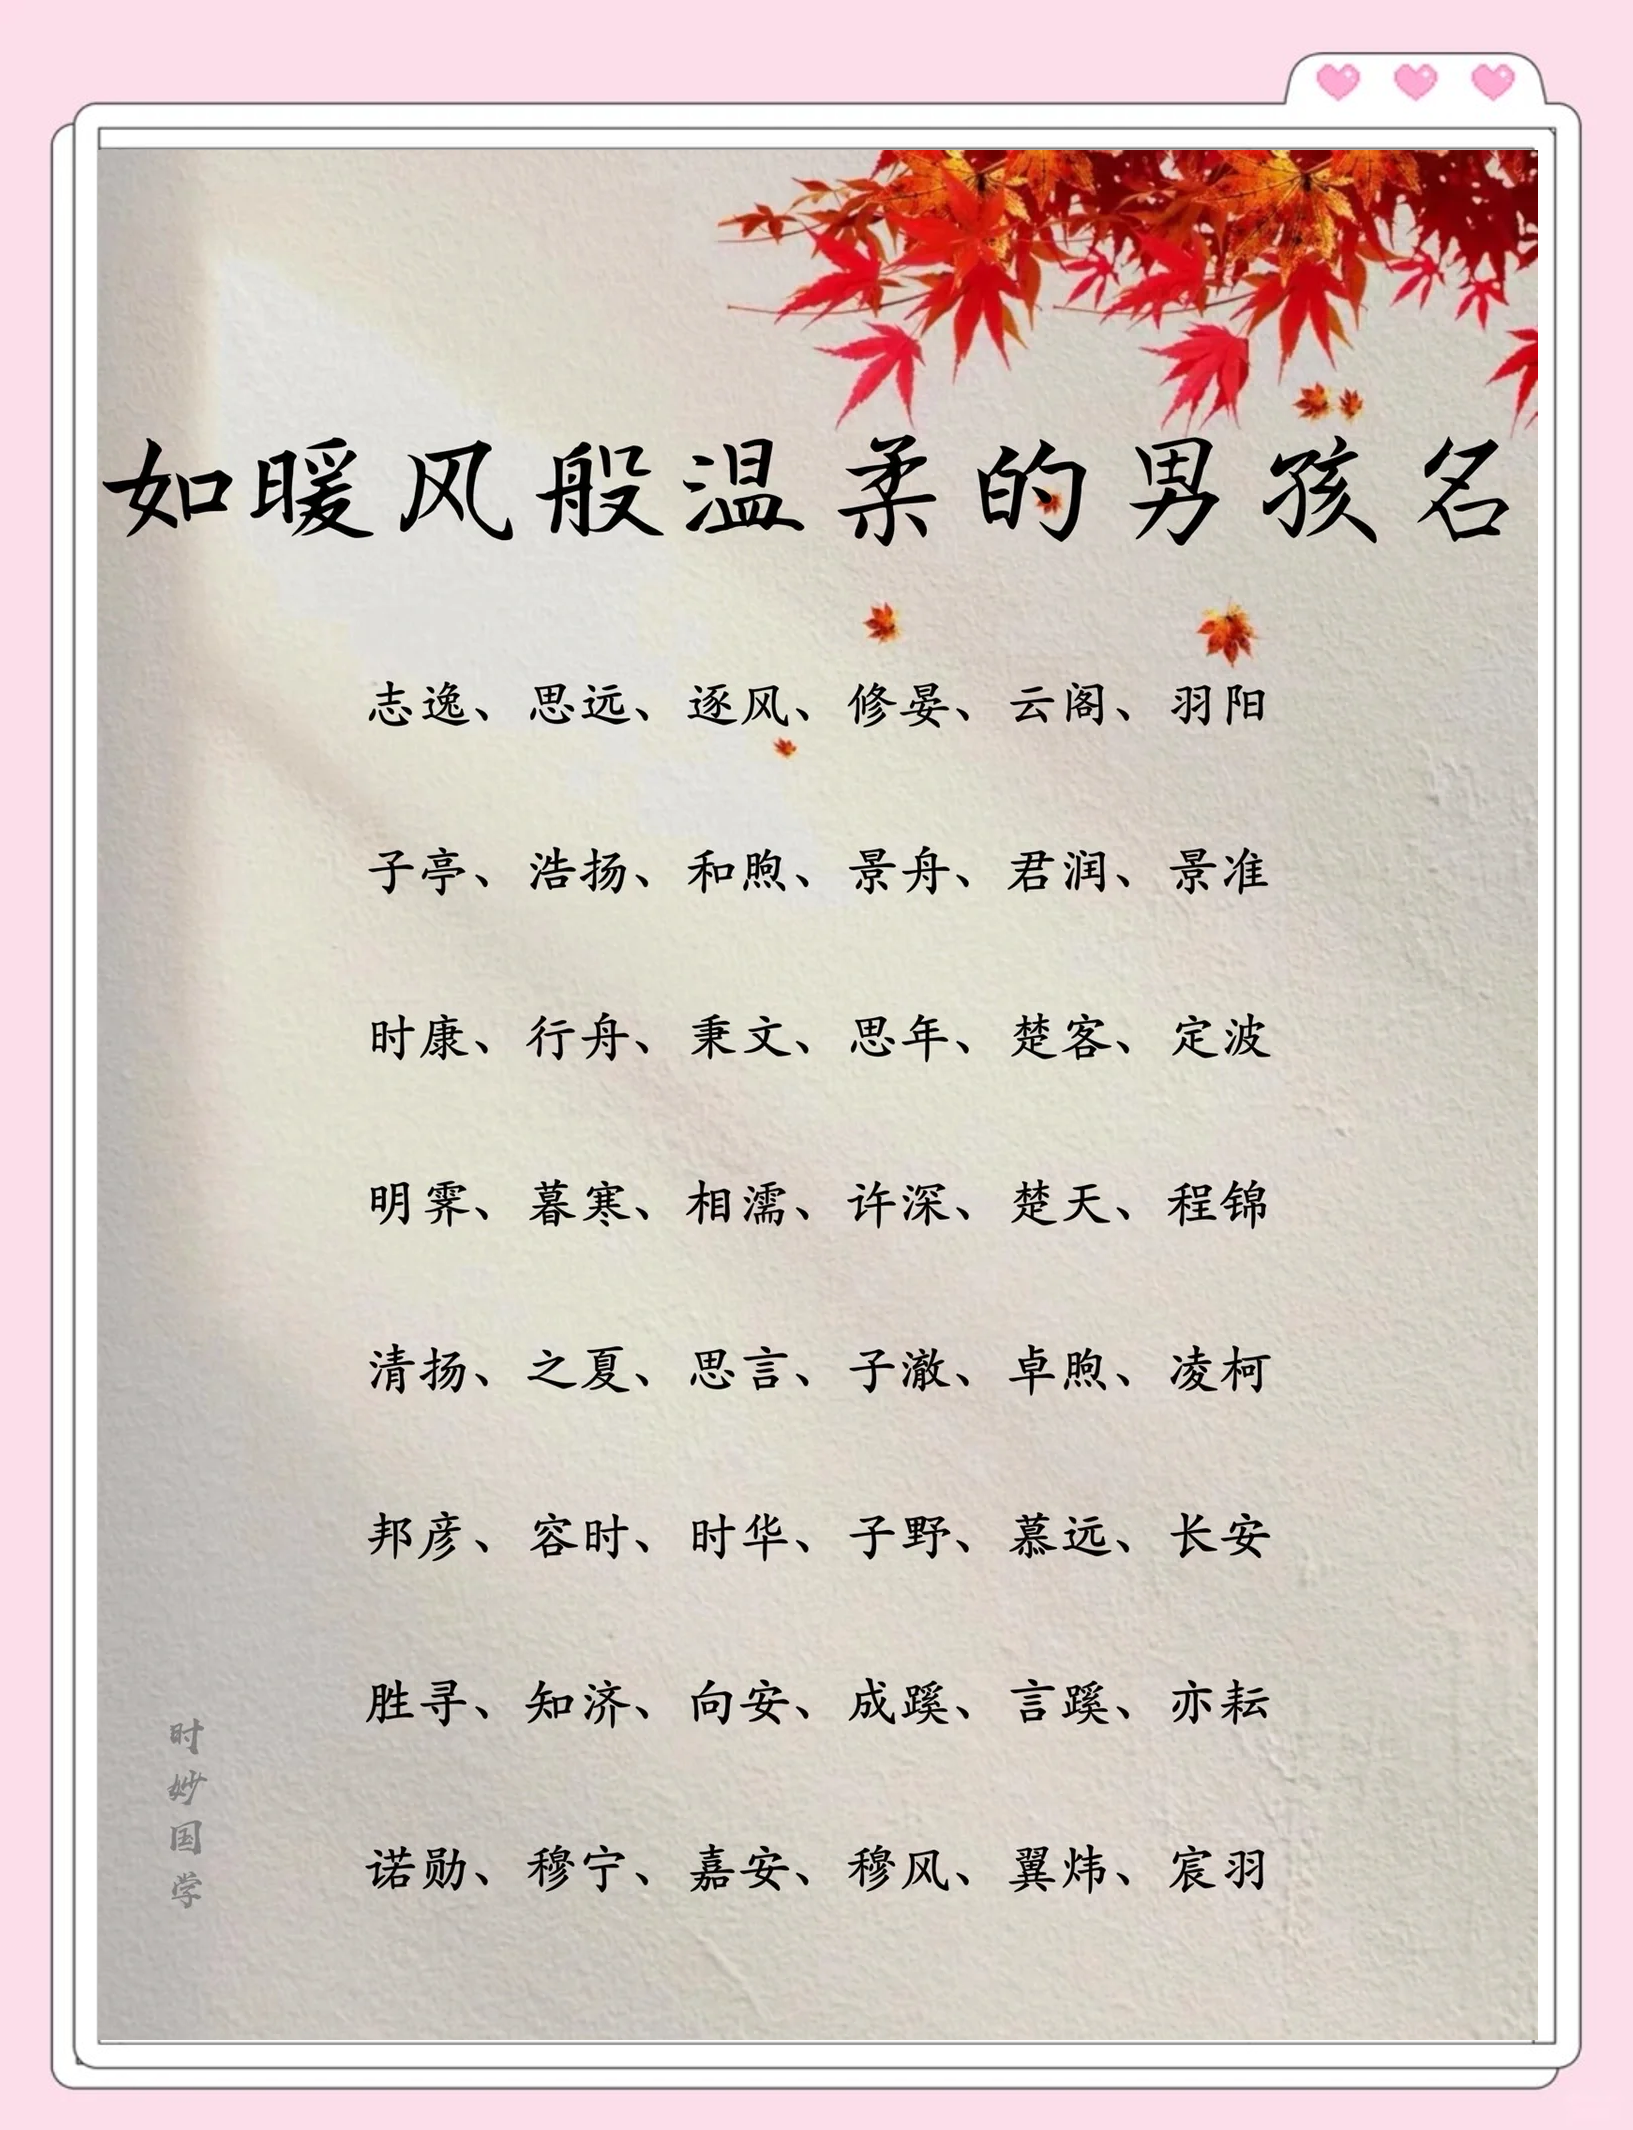 如暖风般温柔的男孩名
志逸、思远、逐风、修晏、云阁、羽阳
子亭、浩扬、和煦、景舟、君润、景准
时康、行舟、秉文、思年、楚客、定波
明霁、暮寒、相濡、许深、楚天、程锦
清扬、之夏、思言、子澈、卓煦、凌柯
邦彦、容时、时华、子野、慕远、长安
胜寻、知济、向安、成蹊、言蹊、亦耘
诺勋、穆宁、嘉安、穆风、翼炜、宸羽
时妙国学